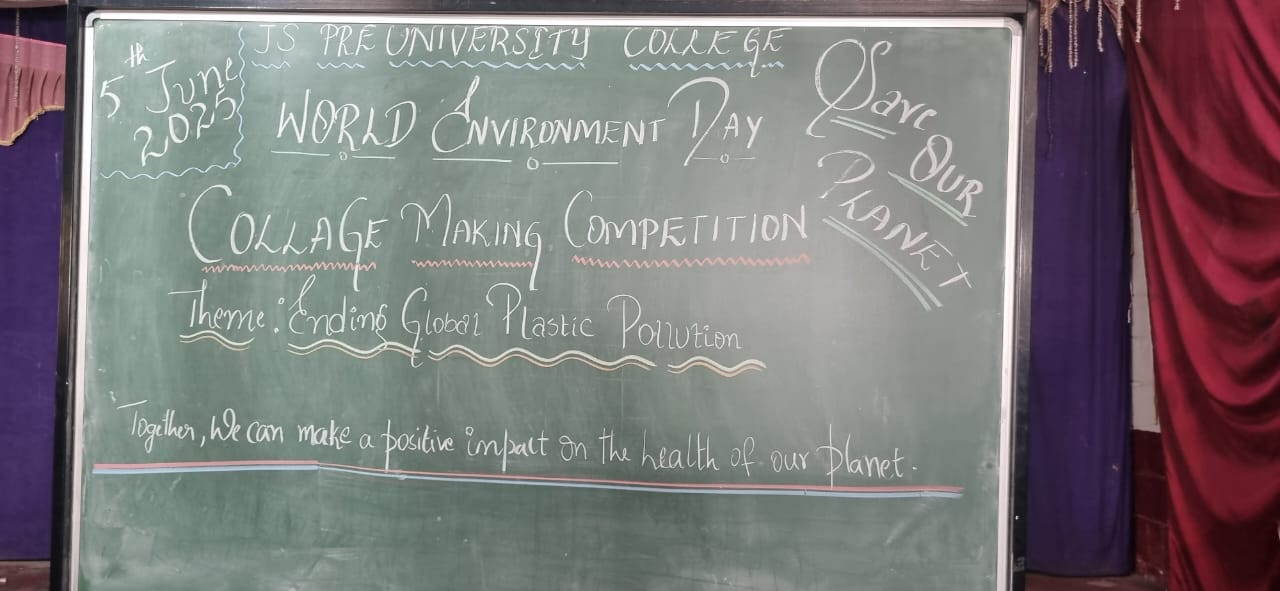 5th June
2025
JS PRE UNIVERSITY COLLEGE
WORLD ENVIRONMENT DAY
Save
OUR
PLANET
COLLAGE MAKING COMPETITION
Theme: Ending Global Plastic Pollution
Together, We can make a positive impact on the health of our planet.